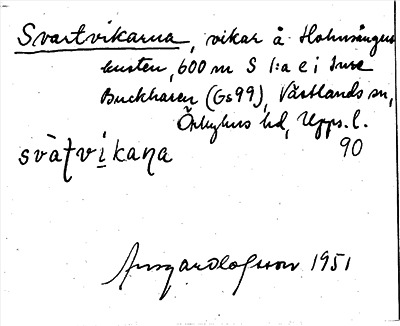 Svartvikarna, vikar å Holmsånger-
kusten, 600 m S l:a e i Inre
Buckharen (Gs99), Västlands sn,
Örbyhus hd, Upps. l.
90
svàt̩vi̱kaṇa
Ansgar Olofsson 1951